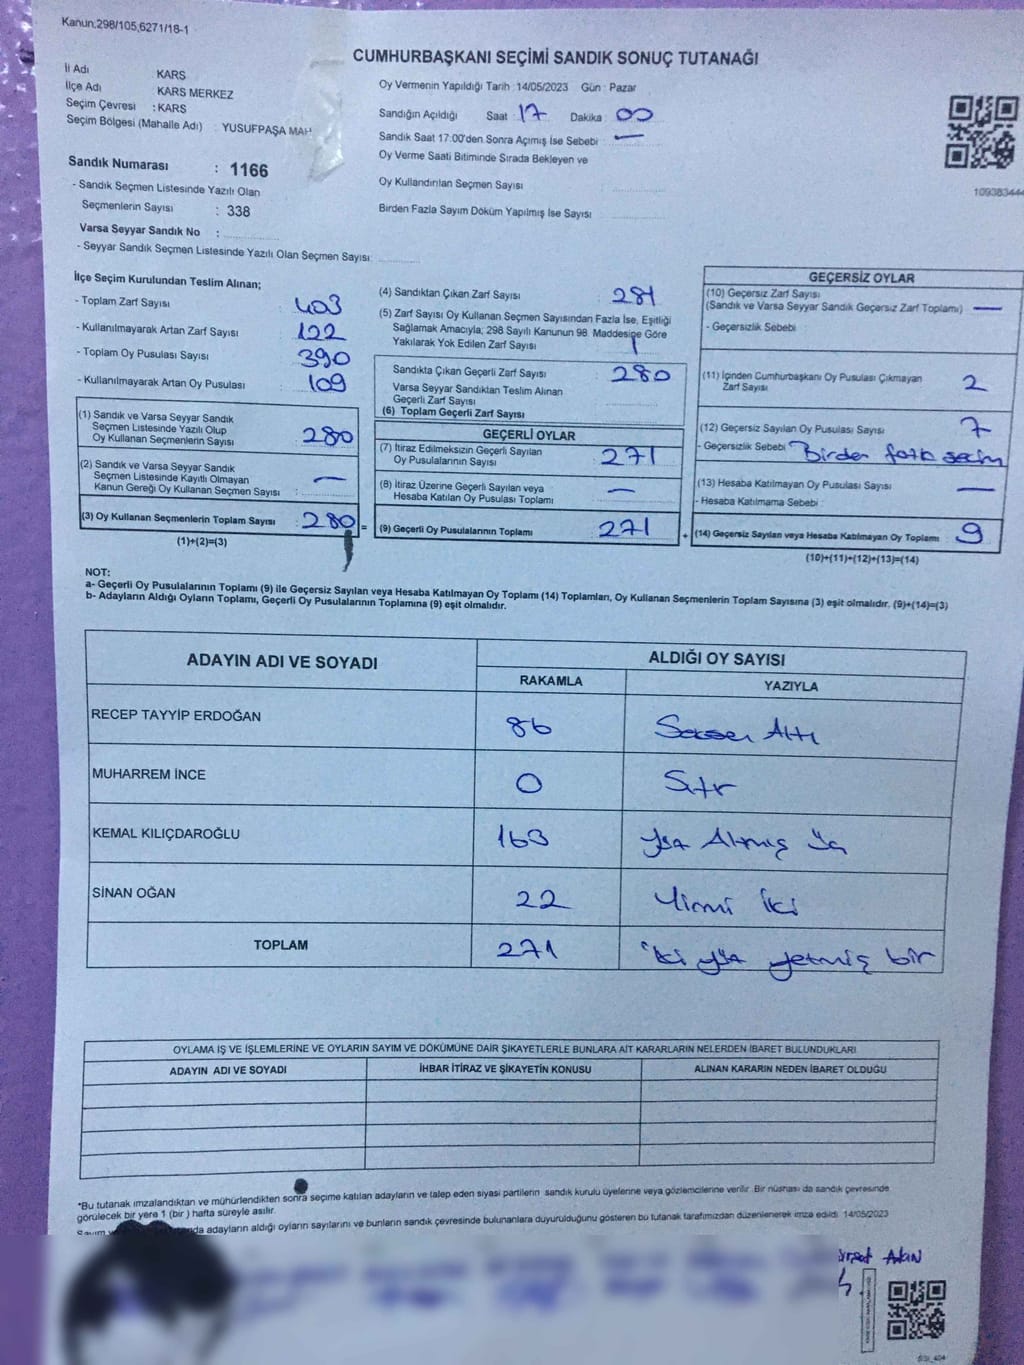 Kanun.298/105,6271/18-1
CUMHURBAŞKANI SEÇİMİ SANDIK SONUÇ TUTANAĞI
İl Adı KARS
İlçe Adı KARS MERKEZ
Seçim Çevresi : KARS
Seçim Bölgesi (Mahalle Adı) : YUSUFPAŞA MAH
Oy Vermenin Yapıldığı Tarih : 14/05/2023 Gün : Pazar
Sandığın Açıldığı Saat : 17 Dakika : 00
Sandık Saat 17:00'den Sonra Açılmış İse Sebebi : —
Oy Verme Saati Bitiminde Sırada Bekleyen ve
Oy Kullandırılan Seçmen Sayısı :
Birden Fazla Sayım Döküm Yapılmış İse Sayısı :
109383444
Sandık Numarası : 1166
- Sandık Seçmen Listesinde Yazılı Olan
Seçmenlerin Sayısı : 338
Varsa Seyyar Sandık No :
- Seyyar Sandık Seçmen Listesinde Yazılı Olan Seçmen Sayısı:
İlçe Seçim Kurulundan Teslim Alınan;
- Toplam Zarf Sayısı : 403
- Kullanılmayarak Artan Zarf Sayısı : 122
- Toplam Oy Pusulası Sayısı : 390
- Kullanılmayarak Artan Oy Pusulası : 109
(1) Sandık ve Varsa Seyyar Sandık
Seçmen Listesinde Yazılı Olup
Oy Kullanan Seçmenlerin Sayısı : 280
(2) Sandık ve Varsa Seyyar Sandık
Seçmen Listesinde Kayıtlı Olmayan
Kanun Gereği Oy Kullanan Seçmen Sayısı : —
(3) Oy Kullanan Seçmenlerin Toplam Sayısı : 280 =
(1)+(2)=(3)
(4) Sandıktan Çıkan Zarf Sayısı : 281
(5) Zarf Sayısı Oy Kullanan Seçmen Sayısından Fazla İse, Eşitliği
Sağlamak Amacıyla; 298 Sayılı Kanunun 98. Maddesine Göre
Yakılarak Yok Edilen Zarf Sayısı : 1
Sandıkta Çıkan Geçerli Zarf Sayısı : 280
Varsa Seyyar Sandıktan Teslim Alınan
Geçerli Zarf Sayısı :
(6) Toplam Geçerli Zarf Sayısı
GEÇERLİ OYLAR
(7) İtiraz Edilmeksizin Geçerli Sayılan
Oy Pusulalarının Sayısı : 271
(8) İtiraz Üzerine Geçerli Sayılan veya
Hesaba Katılan Oy Pusulası Toplamı : —
(9) Geçerli Oy Pusulalarının Toplamı : 271 +
GEÇERSİZ OYLAR
(10) Geçersiz Zarf Sayısı
(Sandık ve Varsa Seyyar Sandık Geçersiz Zarf Toplamı) : —
- Geçersizlik Sebebi :
(11) İçinden Cumhurbaşkanı Oy Pusulası Çıkmayan
Zarf Sayısı : 2
(12) Geçersiz Sayılan Oy Pusulası Sayısı : 7
- Geçersizlik Sebebi : Birden fazla seçim
(13) Hesaba Katılmayan Oy Pusulası Sayısı : —
- Hesaba Katılmama Sebebi :
(14) Geçersiz Sayılan veya Hesaba Katılmayan Oy Toplamı : 9
(10)+(11)+(12)+(13)=(14)
NOT:
a- Geçerli Oy Pusulalarının Toplamı (9) ile Geçersiz Sayılan veya Hesaba Katılmayan Oy Toplamı (14) Toplamları, Oy Kullanan Seçmenlerin Toplam Sayısına (3) eşit olmalıdır. (9)+(14)=(3)
b- Adayların Aldığı Oyların Toplamı, Geçerli Oy Pusulalarının Toplamına (9) eşit olmalıdır.
ADAYIN ADI VE SOYADI ALDIĞI OY SAYISI
RAKAMLA YAZIYLA
RECEP TAYYİP ERDOĞAN 86 Seksen Altı
MUHARREM İNCE 0 Sıfır
KEMAL KILIÇDAROĞLU 163 Yüz Altmış üç
SİNAN OĞAN 22 Yirmi iki
TOPLAM 271 iki yüz yetmiş bir
OYLAMA İŞ VE İŞLEMLERİNE VE OYLARIN SAYIM VE DÖKÜMÜNE DAİR ŞİKAYETLERLE BUNLARA AİT KARARLARIN NELERDEN İBARET BULUNDUKLARI
ADAYIN ADI VE SOYADI İHBAR İTİRAZ VE ŞİKAYETİN KONUSU ALINAN KARARIN NEDEN İBARET OLDUĞU
*Bu tutanak imzalandıktan ve mühürlendikten sonra seçime katılan adayların ve talep eden siyasi partilerin sandık kurulu üyelerine veya gözlemcilerine verilir. Bir nüshası da sandık çevresinde
görülecek bir yere 1 (bir) hafta süreyle asılır.
Sayım adayların aldığı oyların sayılarını ve bunların sandık çevresinde bulunanlara duyurulduğunu gösteren bu tutanak tarafımızdan düzenlenerek imza edildi. 14/05/2023